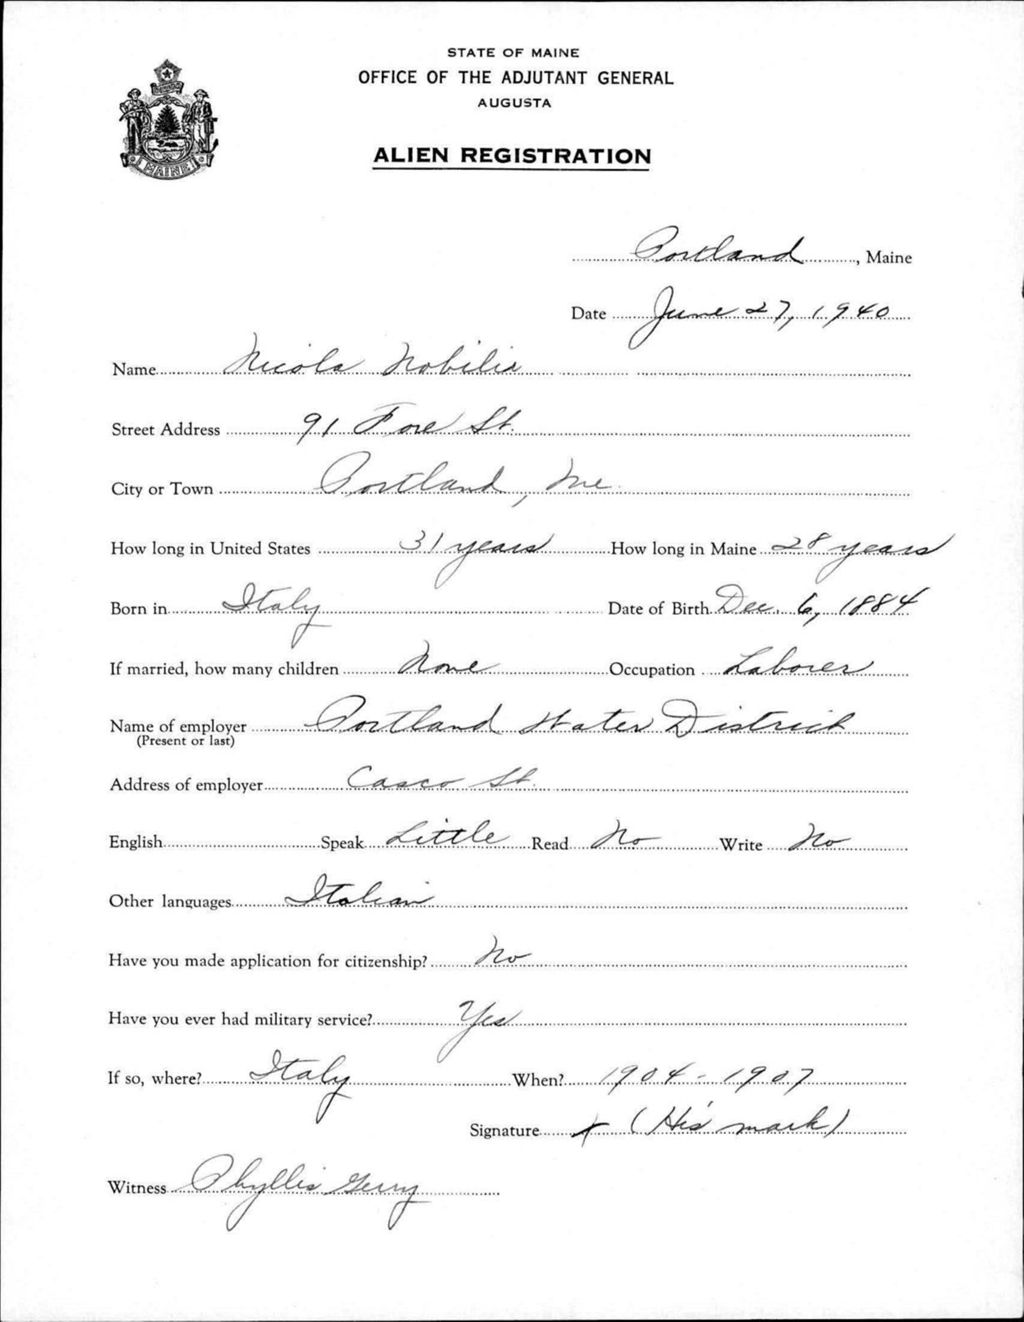 STATE OF MAINE
OFFICE OF THE ADJUTANT GENERAL
AUGUSTA
ALIEN REGISTRATION
MAINE
Portland, Maine
Date June 27, 1940
Name Nicola Nobilia
Street Address 91 Fore St.
City or Town Portland, Me.
How long in United States 31 years How long in Maine 28 years
Born in Italy Date of Birth Dec. 6, 1884
If married, how many children None Occupation Laborer
Name of employer Portland Water District
(Present or last)
Address of employer Casco St.
English Speak Little Read No Write No
Other languages Italian
Have you made application for citizenship? No
Have you ever had military service? Yes
If so, where? Italy When? 1904-1907
Signature x (His mark)
Witness Phyllis Gerry